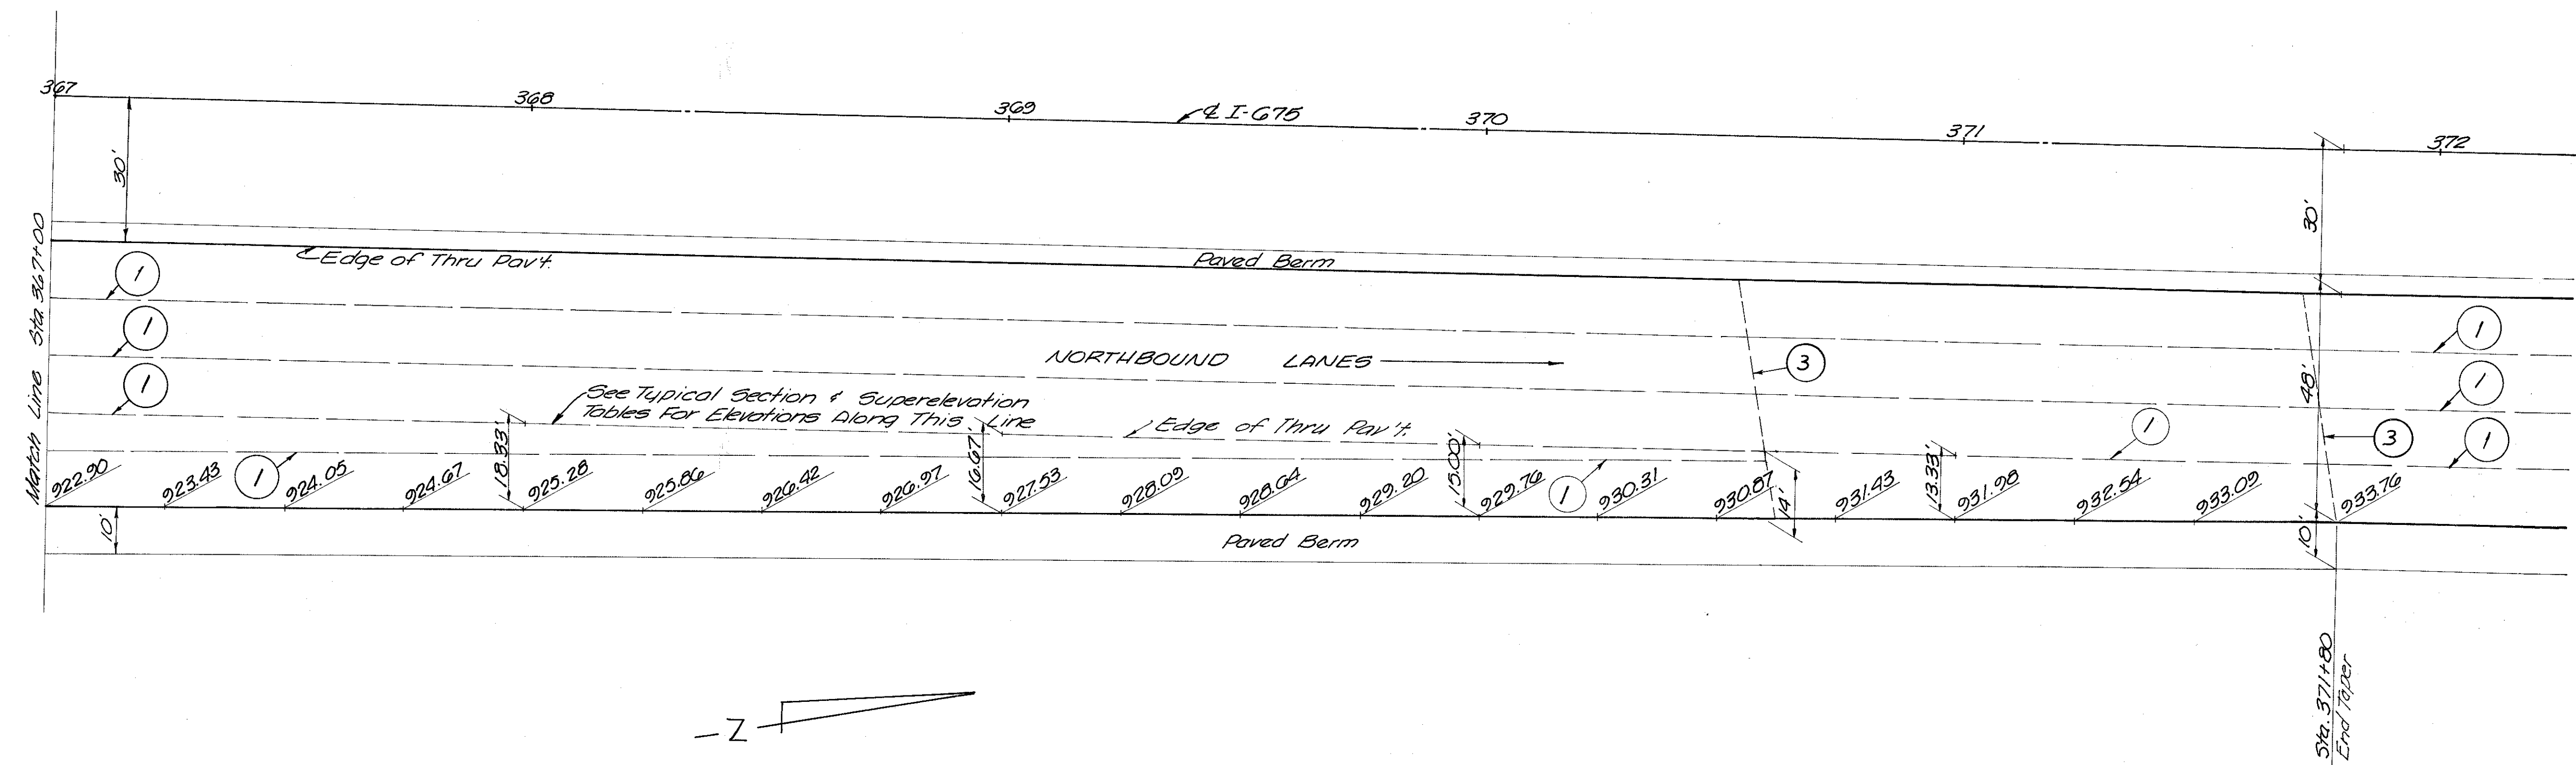 367
368
369
℄ I-675
370
371
372
30'
30'
Match Line Sta. 367+00
Edge of Thru Pav't.
Paved Berm
1
1
1
1
NORTHBOUND LANES
3
48'
1
1
See Typical Section & Superelevation
Tables For Elevations Along This Line
Edge of Thru Pav't.
1
3
1
18.33'
16.67'
15.00'
14'
13.33'
922.90
923.43
1
924.05
924.67
925.28
925.86
926.42
926.97
927.53
928.09
928.64
929.20
929.76
930.31
930.87
931.43
931.98
932.54
933.09
933.76
10'
Paved Berm
10'
Sta. 371+80
End Taper
N